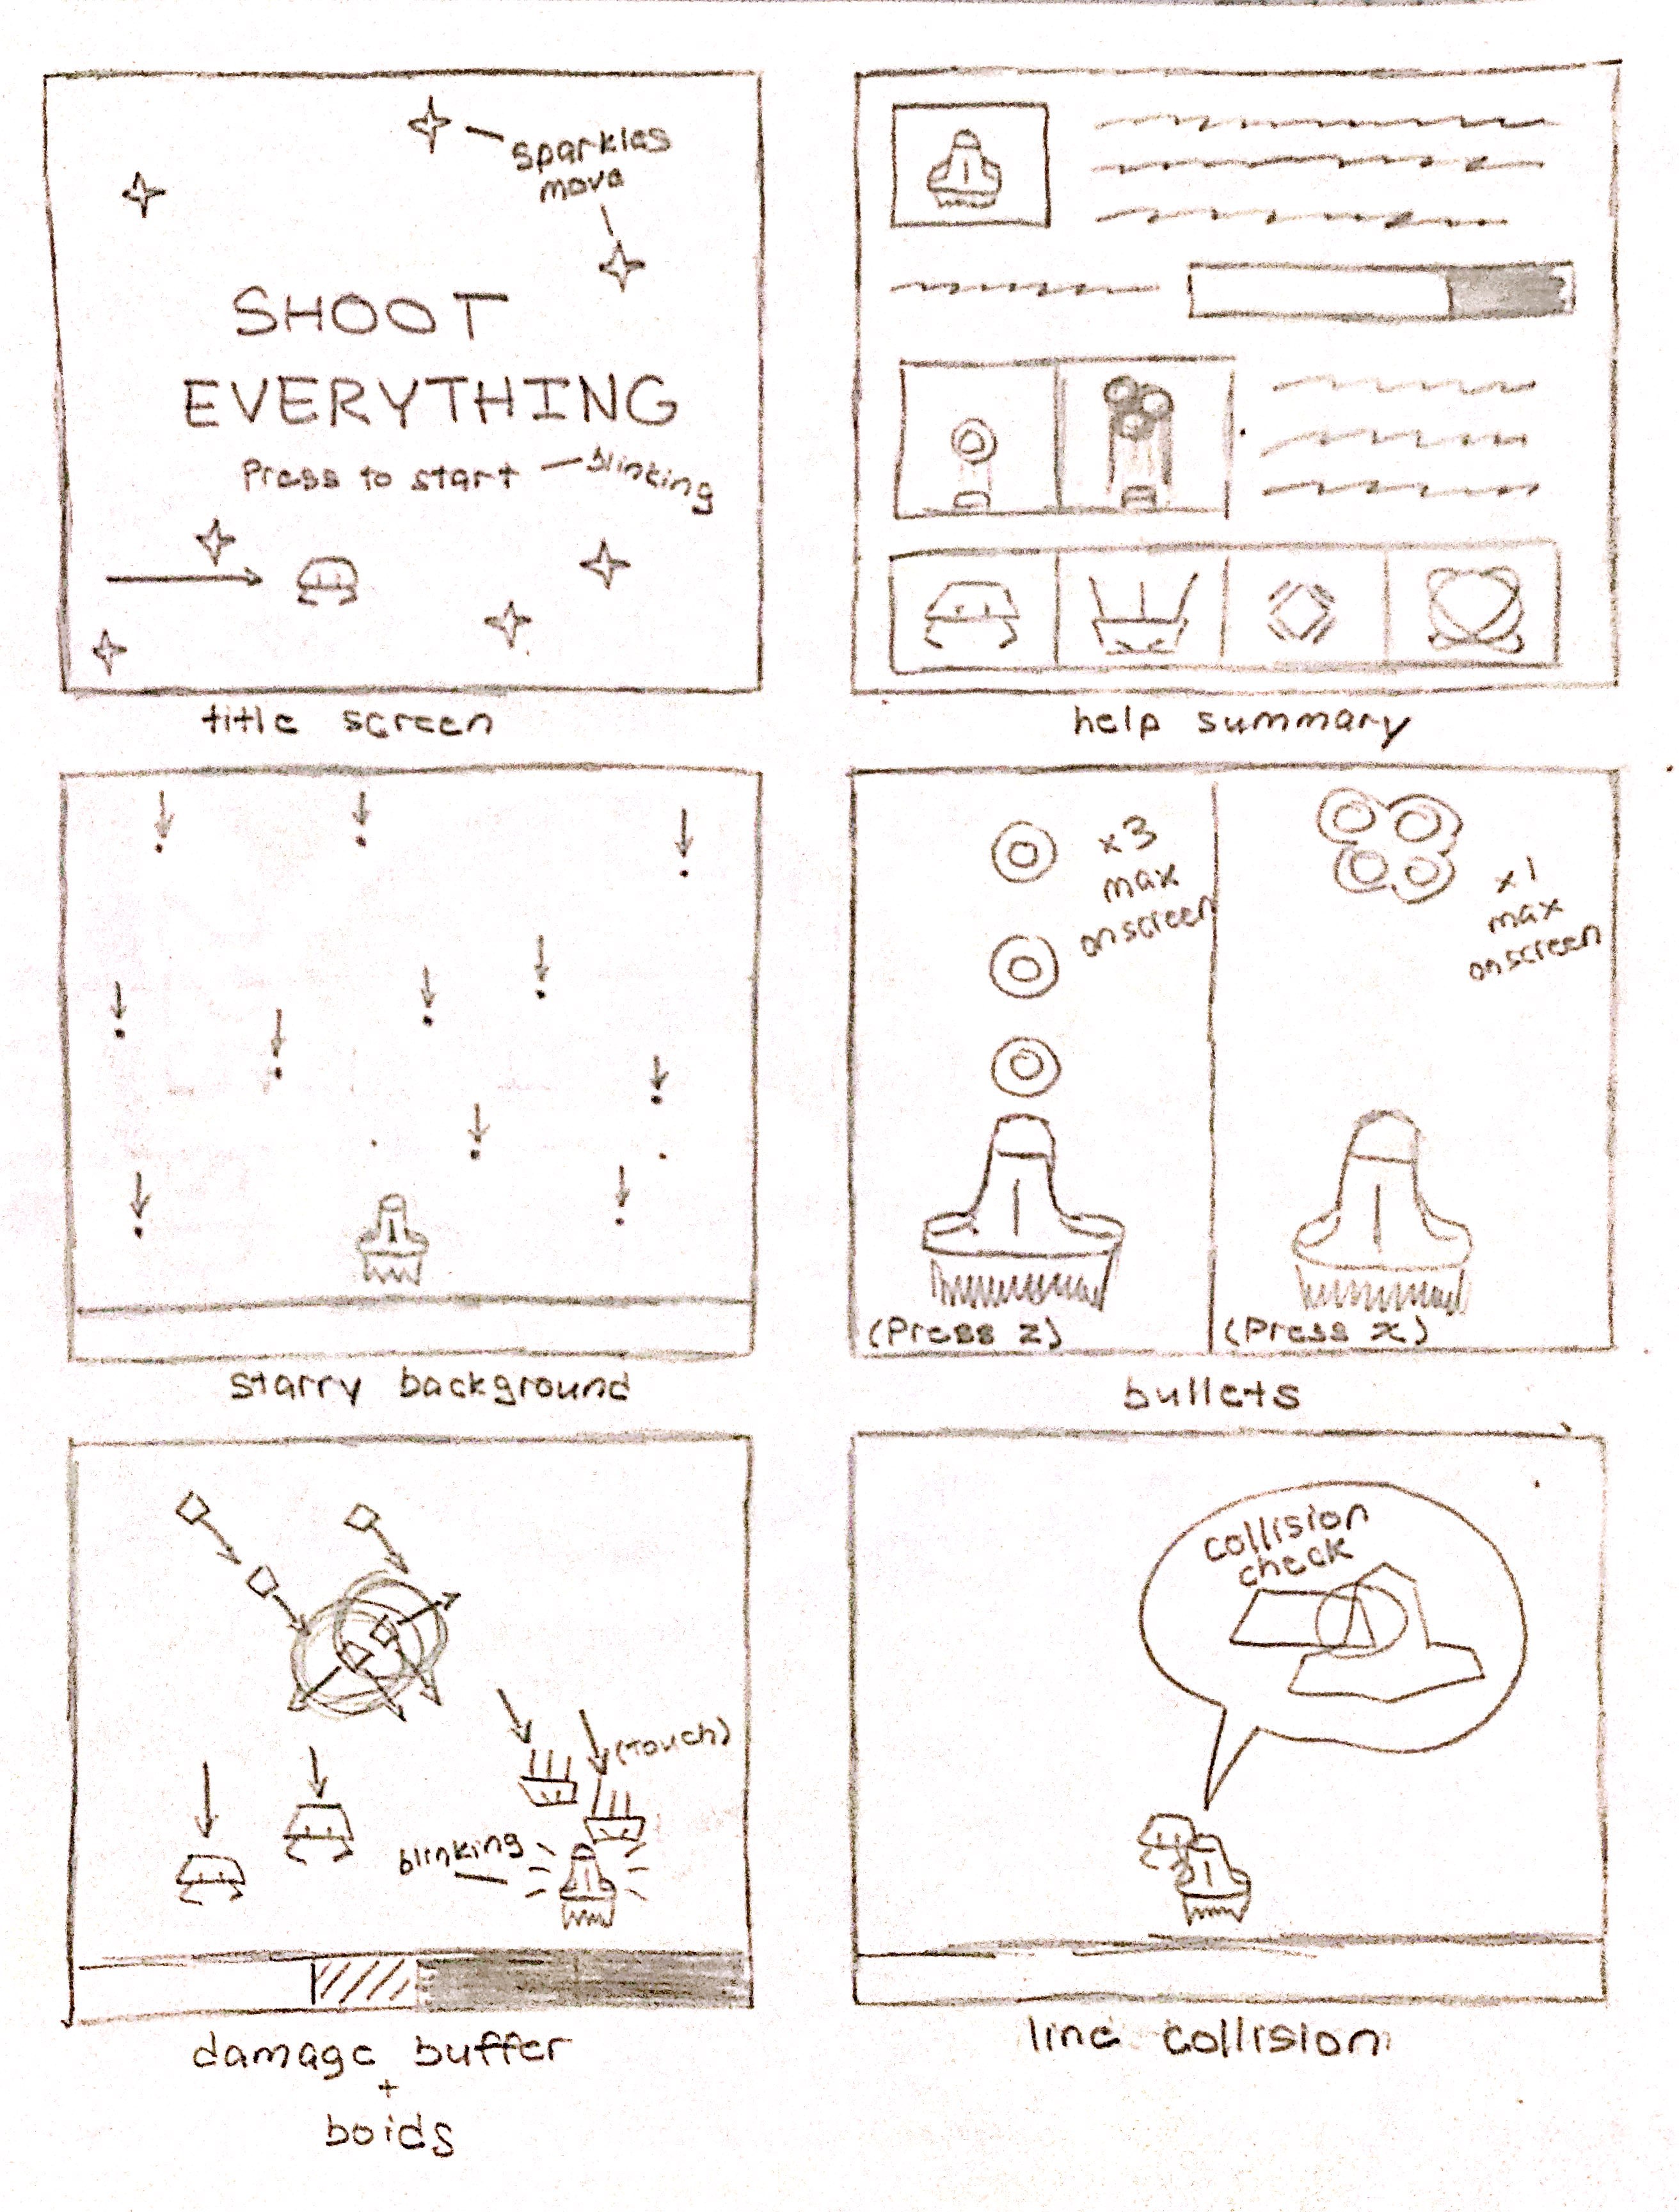 sparkles
move
SHOOT
EVERYTHING
Press to start
blinking
title screen
help summary
starry background
x3
max
onscreen
x1
max
onscreen
(Press z)
(Press x)
bullets
(touch)
blinking
damage buffer
+
boids
collision
check
line collision